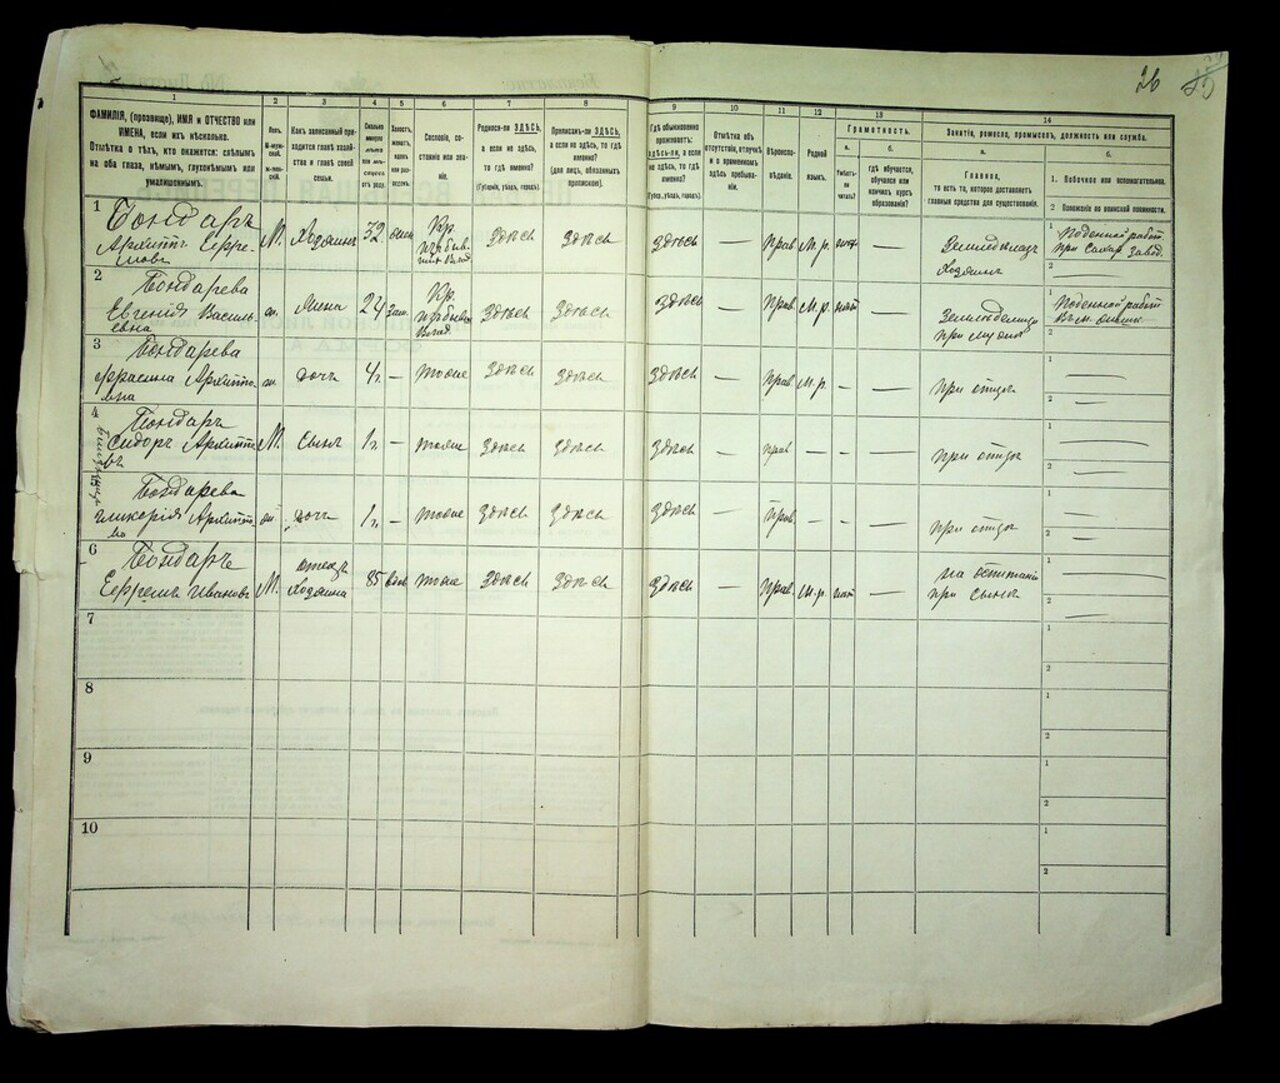 26
1
2
3
4
5
6
7
8
ФАМИЛІЯ, (прозвище), ИМЯ и ОТЧЕСТВО или
ИМЕНА, если ихъ нѣсколько.
Отмѣтка о тѣхъ, кто окажется: слѣпымъ
на оба глаза, нѣмымъ, глухонѣмымъ или
умалишеннымъ.
Полъ.
М-мужской.
Ж-женскій.
Какъ записанный приходится главѣ хозяйства и главѣ своей
семьи.
Сколько
минуло
лѣтъ
или мѣсяцевъ
отъ роду.
Холостъ,
женатъ,
вдовъ
или разведенъ.
Сословіе, состояніе или званіе.
Родился-ли ЗДѢСЬ,
а если не здѣсь,
то гдѣ именно?
(Губернія, уѣздъ, городъ).
Приписанъ-ли ЗДѢСЬ,
а если не здѣсь, то гдѣ
именно?
(для лицъ, обязанныхъ
припиской).
9
10
11
12
13
14
Гдѣ обыкновенно
проживаетъ:
здѣсь-ли, а если
не здѣсь, то гдѣ
именно?
(Губер., уѣздъ, городъ).
Отмѣтка объ
отсутствіи, отлучкѣ
и о временномъ
здѣсь пребываніи.
Вѣроисповѣданіе.
Родной
языкъ.
Грамотность.
а.
Умѣетъ-ли
читать?
б.
гдѣ обучается,
обучался или
кончилъ курсъ
образованія?
Занятіе, ремесло, промыселъ, должность или служба.
а.
Главное,
то есть то, которое доставляетъ
главныя средства для существованія.
б.
1. Побочное или вспомогательное.
2 Положеніе по воинской повинности.
1
Бондарь
Архиппъ Ефремовъ
М. Хозяинъ 32 жен Кр.
Здѣсь Здѣсь Здѣсь — Прав М.р. нѣтъ —
Хозяинъ
1 Поденной работ
при Сахар Завод.
2 —
2
Бондарева
Евгенія Васильевна
ж. Жена 24 зам. Кр.
Здѣсь Здѣсь Здѣсь — Прав. М.р. нѣтъ —
при мужѣ
1 Поденной работ
2
3
Бондарева
Архипповна
ж. дочь 4 г. — тоже Здѣсь Здѣсь Здѣсь — Прав. М.р. — — при отцѣ
1 —
2 —
4
Бондарь
Сидоръ Архипповъ
близнецы
М. Сынъ 1 г. — тоже Здѣсь Здѣсь Здѣсь — прав — — — при отцѣ
1 —
2 —
5
Бондарева
Гликерія
ж. дочь 1 г. — тоже Здѣсь Здѣсь Здѣсь — Прав. — — — при отцѣ
1 —
2 —
6
Бондарь
Ефремъ Ивановъ
М. отецъ
хозяина
85 вдов тоже Здѣсь Здѣсь Здѣсь — Прав. М.р. нѣт —
при сынѣ
1 —
2 —
7
1
2
8
1
2
9
1
2
10
1
2